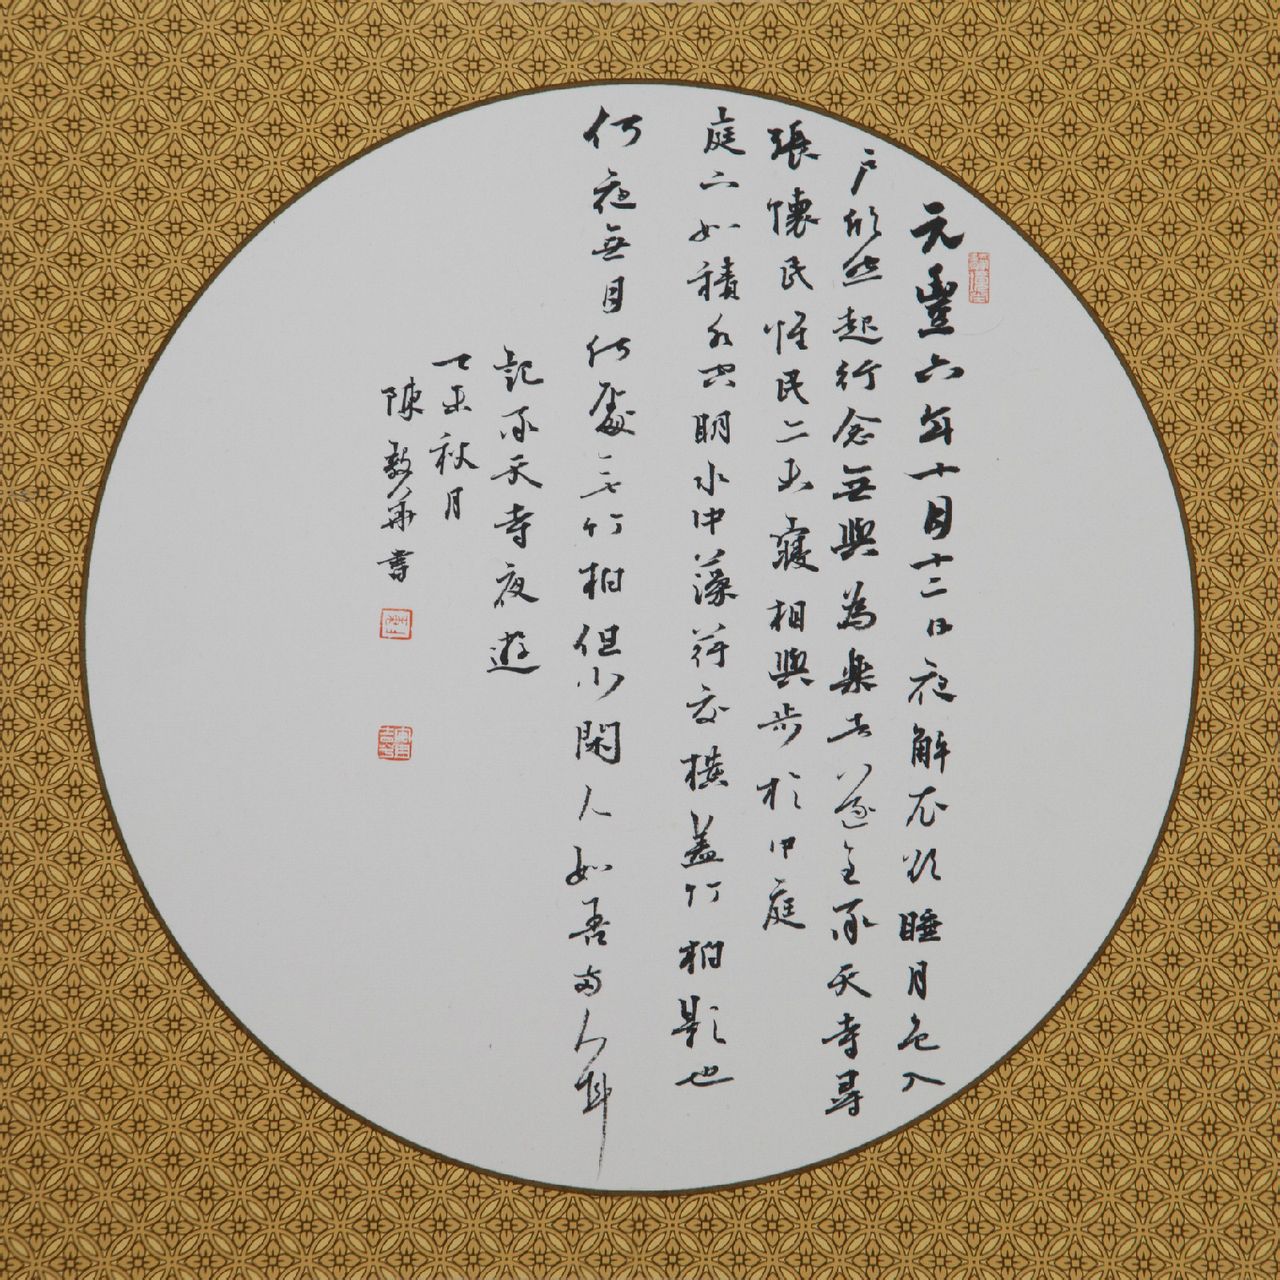 元豐六年十月十二日夜解衣欲睡月色入
戶欣然起行念無與為樂者遂至承天寺尋
張懷民懷民亦未寢相與步於中庭
庭下如積水空明水中藻荇交橫蓋竹柏影也
何夜無月何處無竹柏但少閑人如吾兩人耳
記承天寺夜遊
乙未秋月
陳書